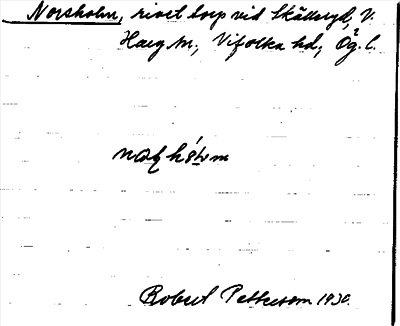 Norsholm, rivet torp vid Skällryd, V.
Harg sn., Vifolka hd, Ög. l.
Robert Pettersson 1930.